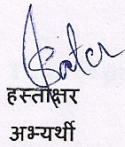 हस्ताक्षर
अभ्यर्थी